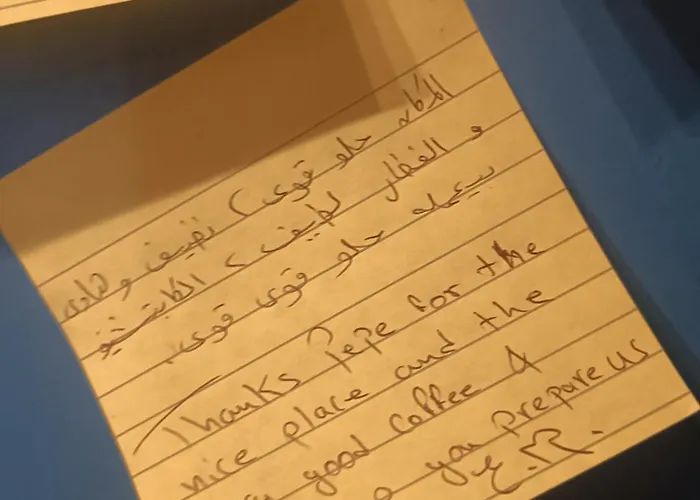 المكان حلو قوى، نضيف وهادى
و الفطار لطيف، الكابتشينو
بيعمله حلو قوى قوى.
Thanks Pepe for the
nice place and the
good coffee &
you prepare us
E.R.